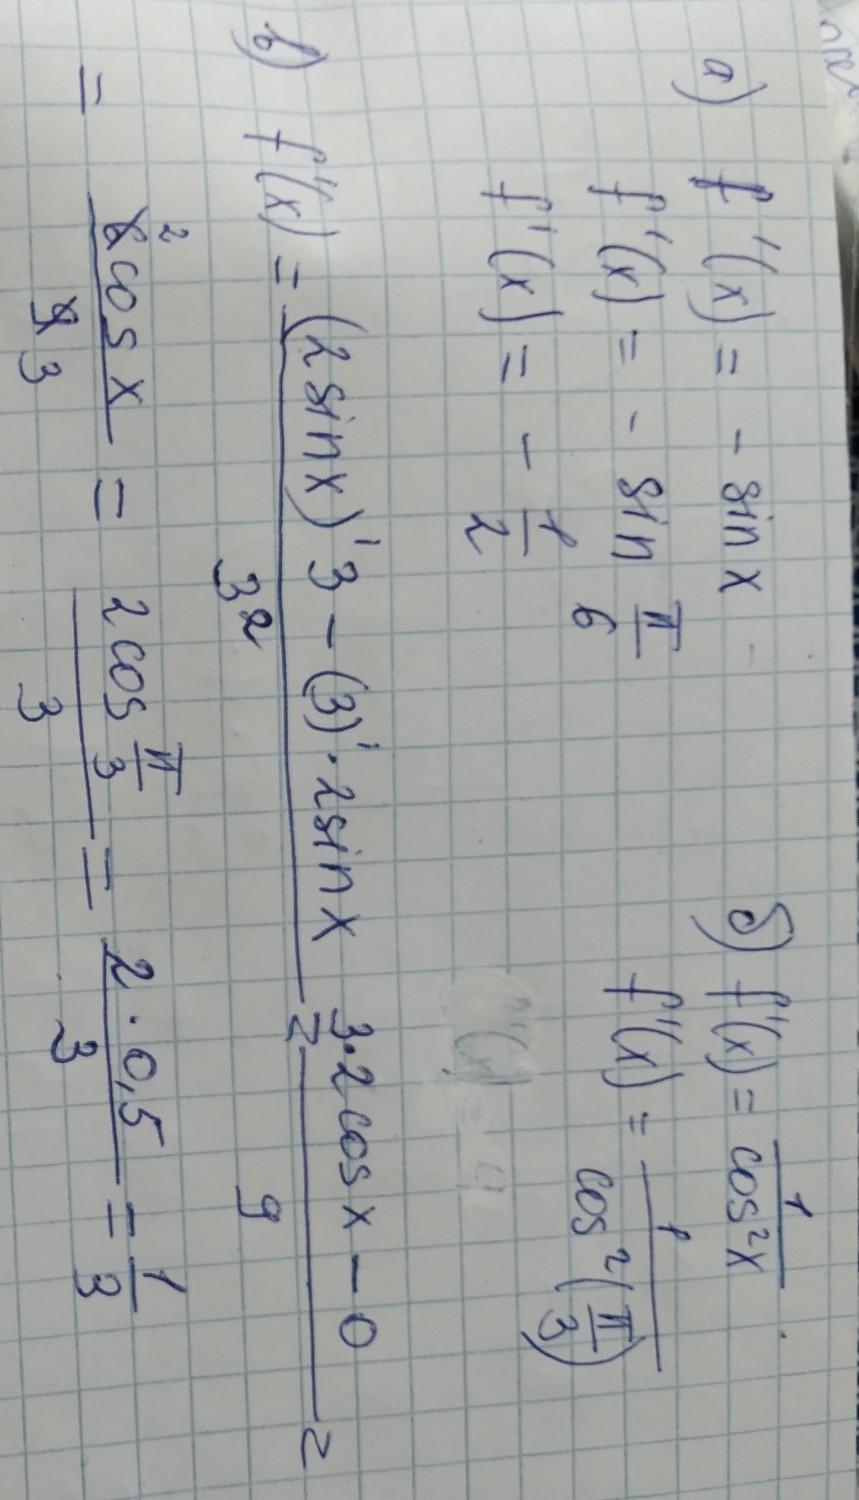 а) f'(x) = - sin x
f'(x) = - sin π/6
f'(x) = - 1/2
б) f'(x) = 1/cos²x
f'(x) = 1/cos²(π/3)
в) f'(x) = (2sinx)'3 - (3)'·2sinx / 3² = 3·2cosx - 0 / 9 =
= 6cosx / 9 = 2cos π/3 / 3 = 2·0,5 / 3 = 1/3